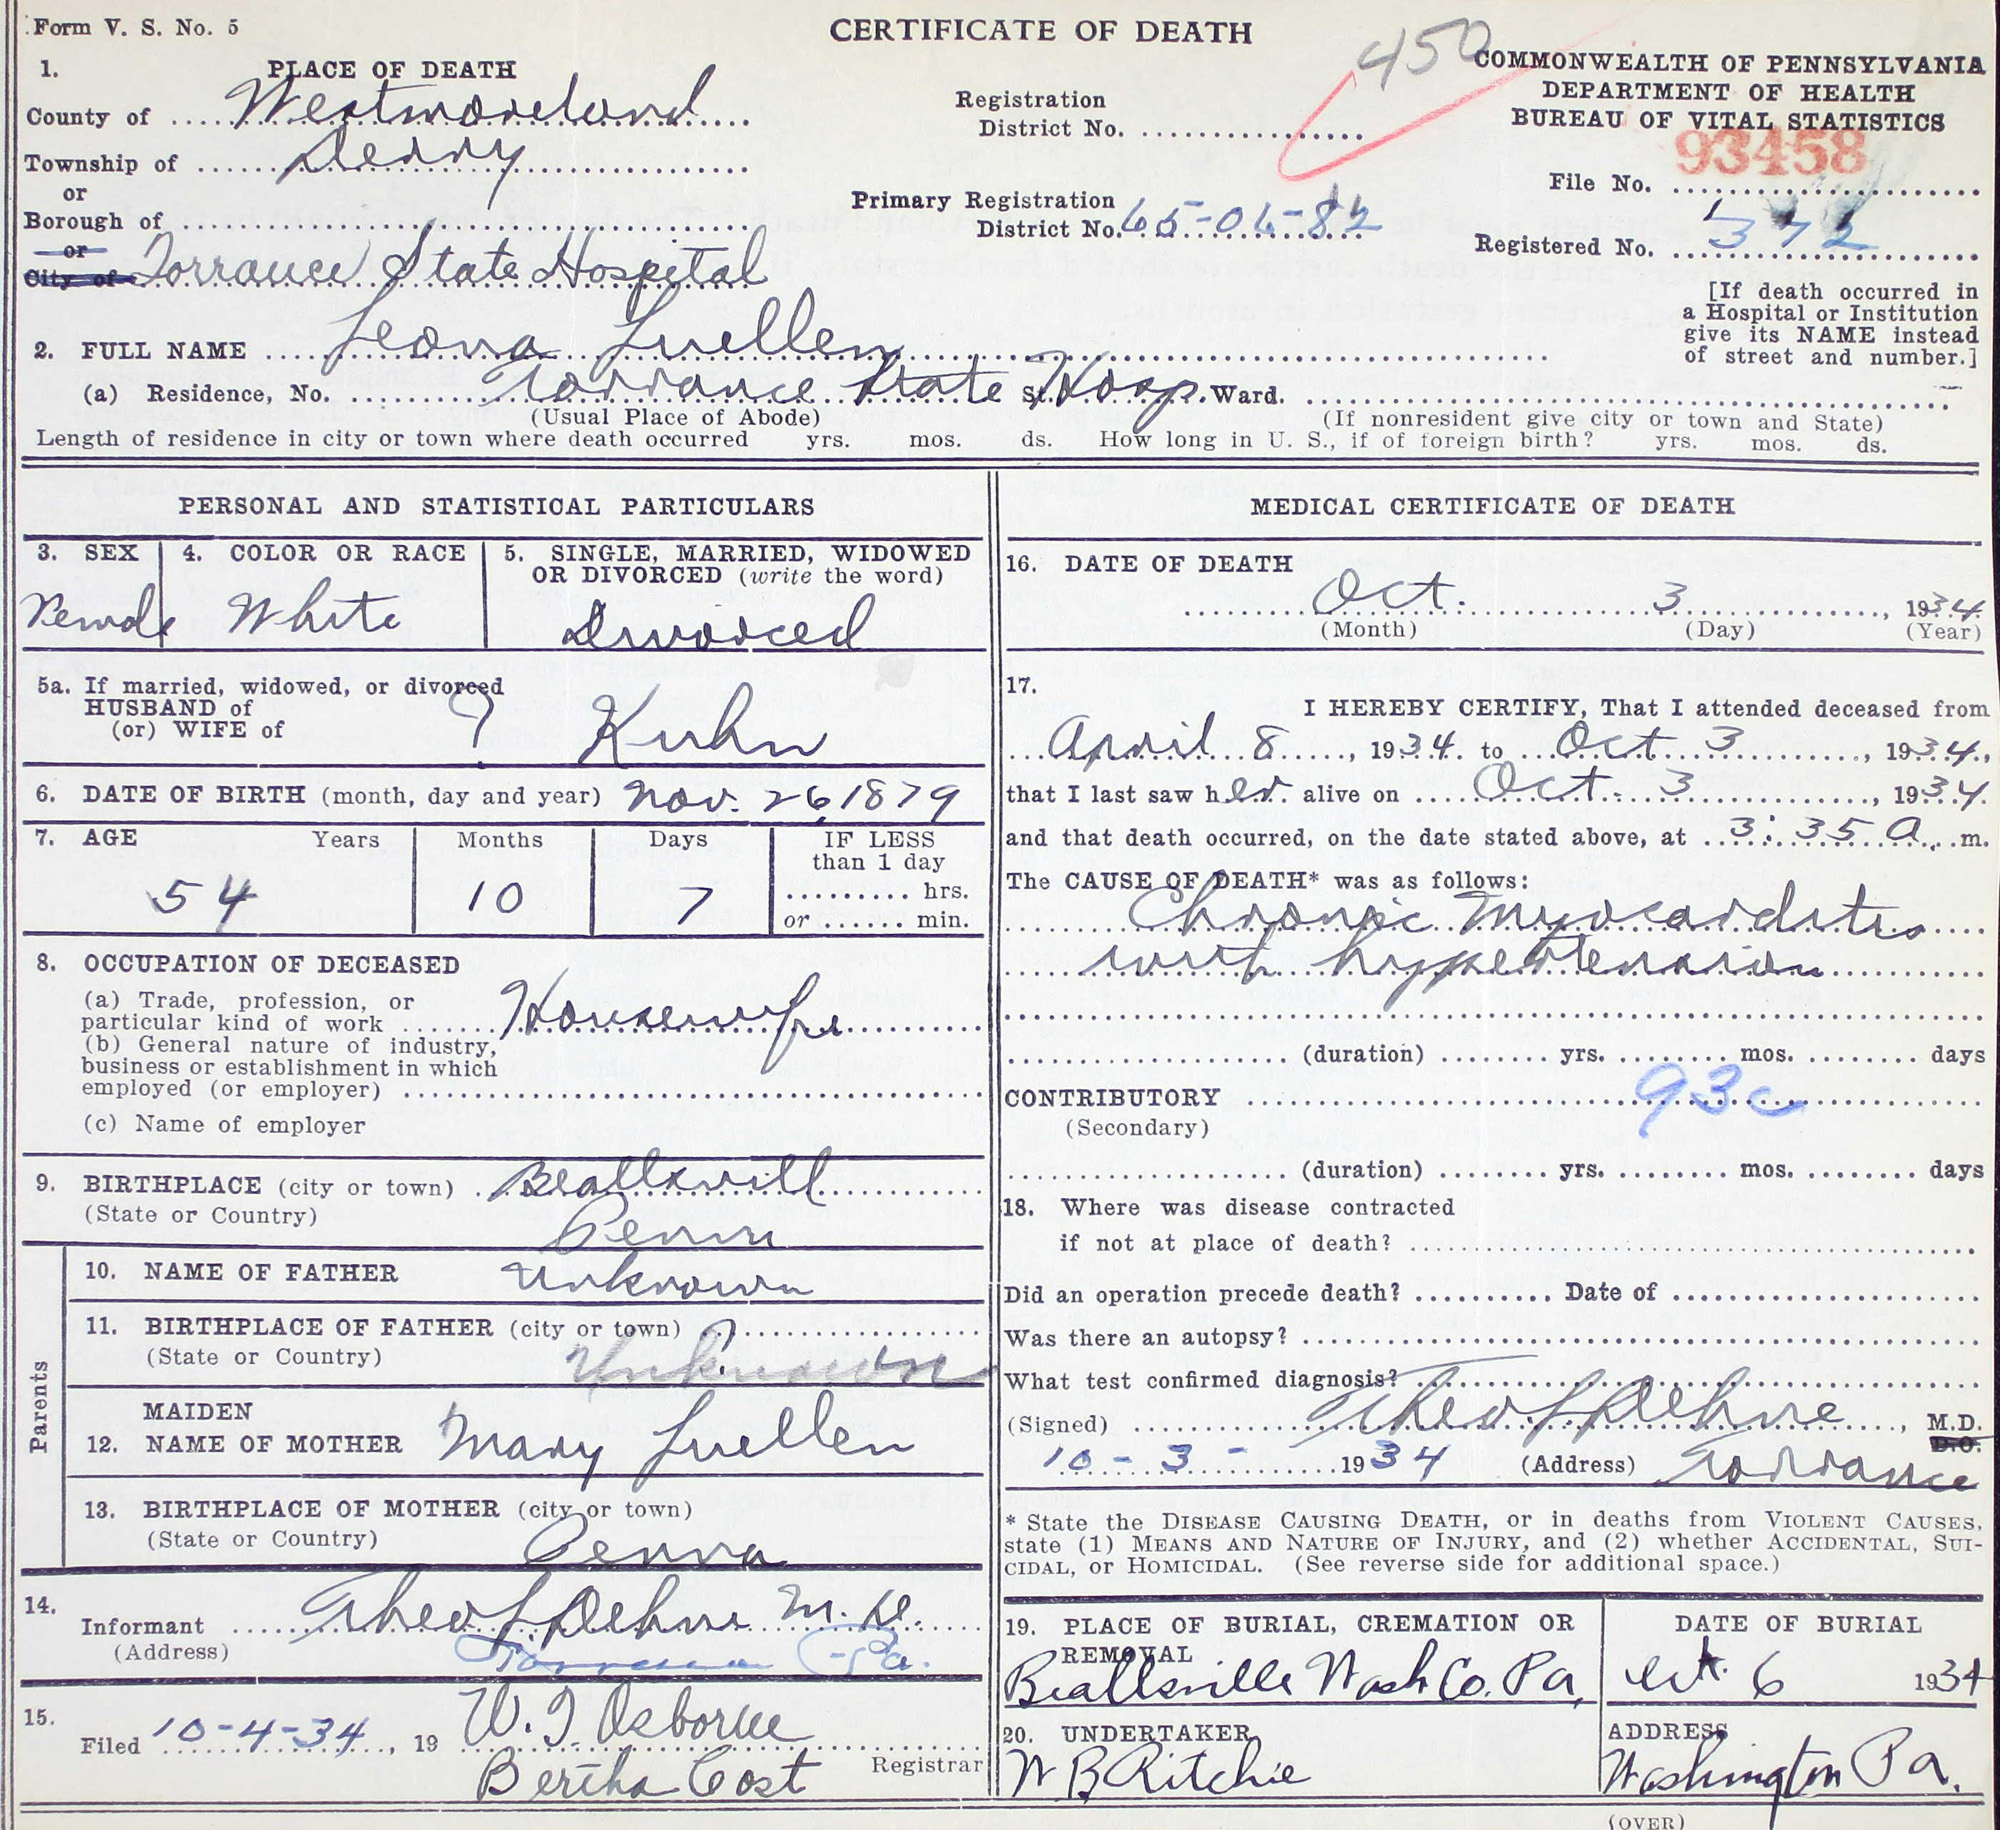 Form V. S. No. 5
CERTIFICATE OF DEATH
450
COMMONWEALTH OF PENNSYLVANIA
DEPARTMENT OF HEALTH
BUREAU OF VITAL STATISTICS
1. PLACE OF DEATH
County of Westmoreland
Township of Derry
or
Borough of
or
City of Torrance State Hospital
Registration
District No.
Primary Registration
District No. 65-06-82
93458
File No.
Registered No. 372
[If death occurred in
a Hospital or Institution
give its NAME instead
of street and number.]
2. FULL NAME Leona Luellen
(a) Residence, No. Torrance State St. Hosp. Ward.
(Usual Place of Abode) (If nonresident give city or town and State)
Length of residence in city or town where death occurred yrs. mos. ds. How long in U. S., if of foreign birth? yrs. mos. ds.
PERSONAL AND STATISTICAL PARTICULARS
3. SEX
Female
4. COLOR OR RACE
White
5. SINGLE, MARRIED, WIDOWED
OR DIVORCED (write the word)
Divorced
5a. If married, widowed, or divorced
HUSBAND of
(or) WIFE of ? Kuhn
6. DATE OF BIRTH (month, day and year) Nov. 26, 1879
7. AGE Years Months Days IF LESS
than 1 day
54 10 7 hrs.
or min.
8. OCCUPATION OF DECEASED
(a) Trade, profession, or
particular kind of work Housewife
(b) General nature of industry,
business or establishment in which
employed (or employer)
(c) Name of employer
9. BIRTHPLACE (city or town) Beallsvill
(State or Country) Penn
Parents
10. NAME OF FATHER Unknown
11. BIRTHPLACE OF FATHER (city or town) ?
(State or Country) Unknown
MAIDEN
12. NAME OF MOTHER Mary Luellen
13. BIRTHPLACE OF MOTHER (city or town)
(State or Country) Penna
14.
Informant Theo L Dehne M. D.
(Address) Torrance Pa.
15.
Filed 10-4-34, 19 W. I. Osborne
Bertha Cost Registrar
MEDICAL CERTIFICATE OF DEATH
16. DATE OF DEATH
Oct. 3, 1934
(Month) (Day) (Year)
17.
I HEREBY CERTIFY, That I attended deceased from
April 8, 1934 to Oct 3, 1934,
that I last saw her alive on Oct. 3, 1934.
and that death occurred, on the date stated above, at 3:35 A. m.
The CAUSE OF DEATH* was as follows:
Chronic Myocarditis
with hypertension
(duration) yrs. mos. days
CONTRIBUTORY 93c
(Secondary)
(duration) yrs. mos. days
18. Where was disease contracted
if not at place of death?
Did an operation precede death? Date of
Was there an autopsy?
What test confirmed diagnosis?
(Signed) Theo L Dehne, M.D.
D.O.
10-3-1934 (Address) Torrance
* State the DISEASE CAUSING DEATH, or in deaths from VIOLENT CAUSES,
state (1) MEANS AND NATURE OF INJURY, and (2) whether ACCIDENTAL, SUI-
CIDAL, or HOMICIDAL. (See reverse side for additional space.)
19. PLACE OF BURIAL, CREMATION OR
REMOVAL
Beallsville Wash Co. Pa,
DATE OF BURIAL
Oct. 6 1934
20. UNDERTAKER
W B Ritchie
ADDRESS
Washington Pa.
(OVER)